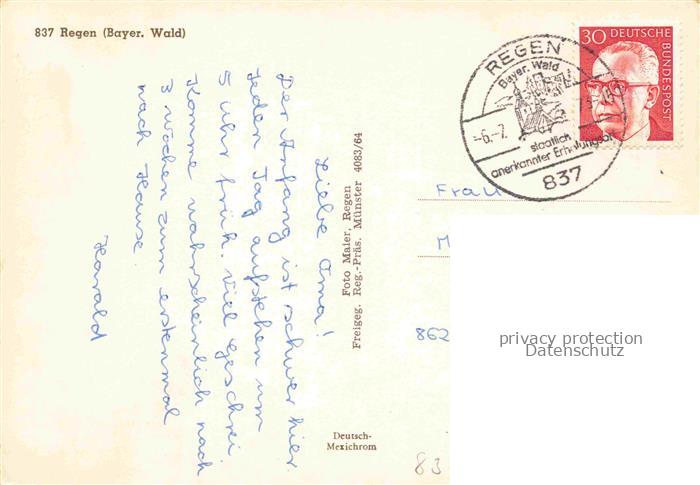 837 Regen (Bayer. Wald)
Liebe Oma!
Der Anfang ist schwer hier.
Jeden Tag aufstehen um
5 uhr früh. Viel Geschrei
Komme wahrscheinlich nach
3 wochen zum erstenmal
nach Hause.
Harald
Foto Maier, Regen
Freigeg. Reg.-Präs. Münster 4083/64
Deutsch-
Mexichrom
REGEN
Bayer. Wald
-6.-7.
staatlich
anerkannter Erholungsort
837
30 DEUTSCHE
BUNDESPOST
Frau
M
862
83
privacy protection
Datenschutz